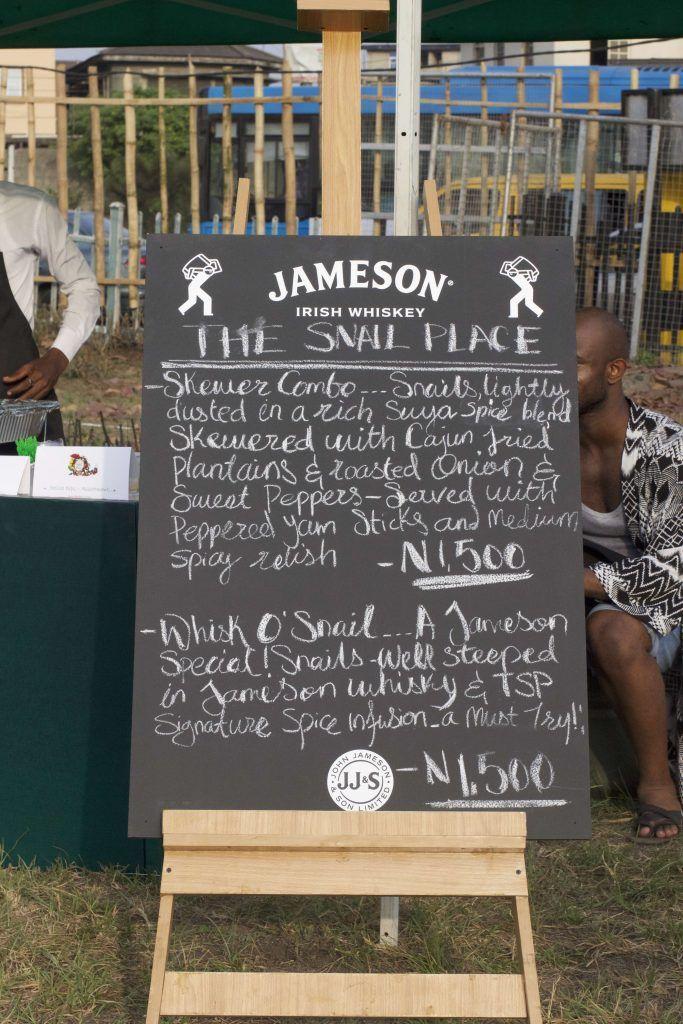 JAMESON®
IRISH WHISKEY
THE SNAIL PLACE
-Skewer Combo... Snails, lightly
dusted in a rich Suya Spice blend
Skewered with Cajun fried
Plantains & roasted Onion &
Sweet Peppers - Served with
Peppered yam Sticks and Medium
spicy relish -N1,500
-Whisk O'Snail... A Jameson
Special! Snails-Well steeped
in Jameson whisky & TSP
Signature Spice infusion - a Must Try!!
JOHN JAMESON
JJ&S
& SON LIMITED
-N1,500